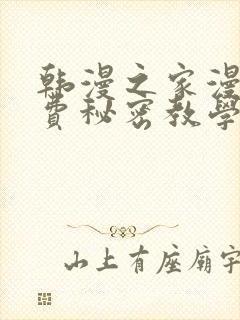 韩漫之家漫
费秘密教学
山上有座廟字